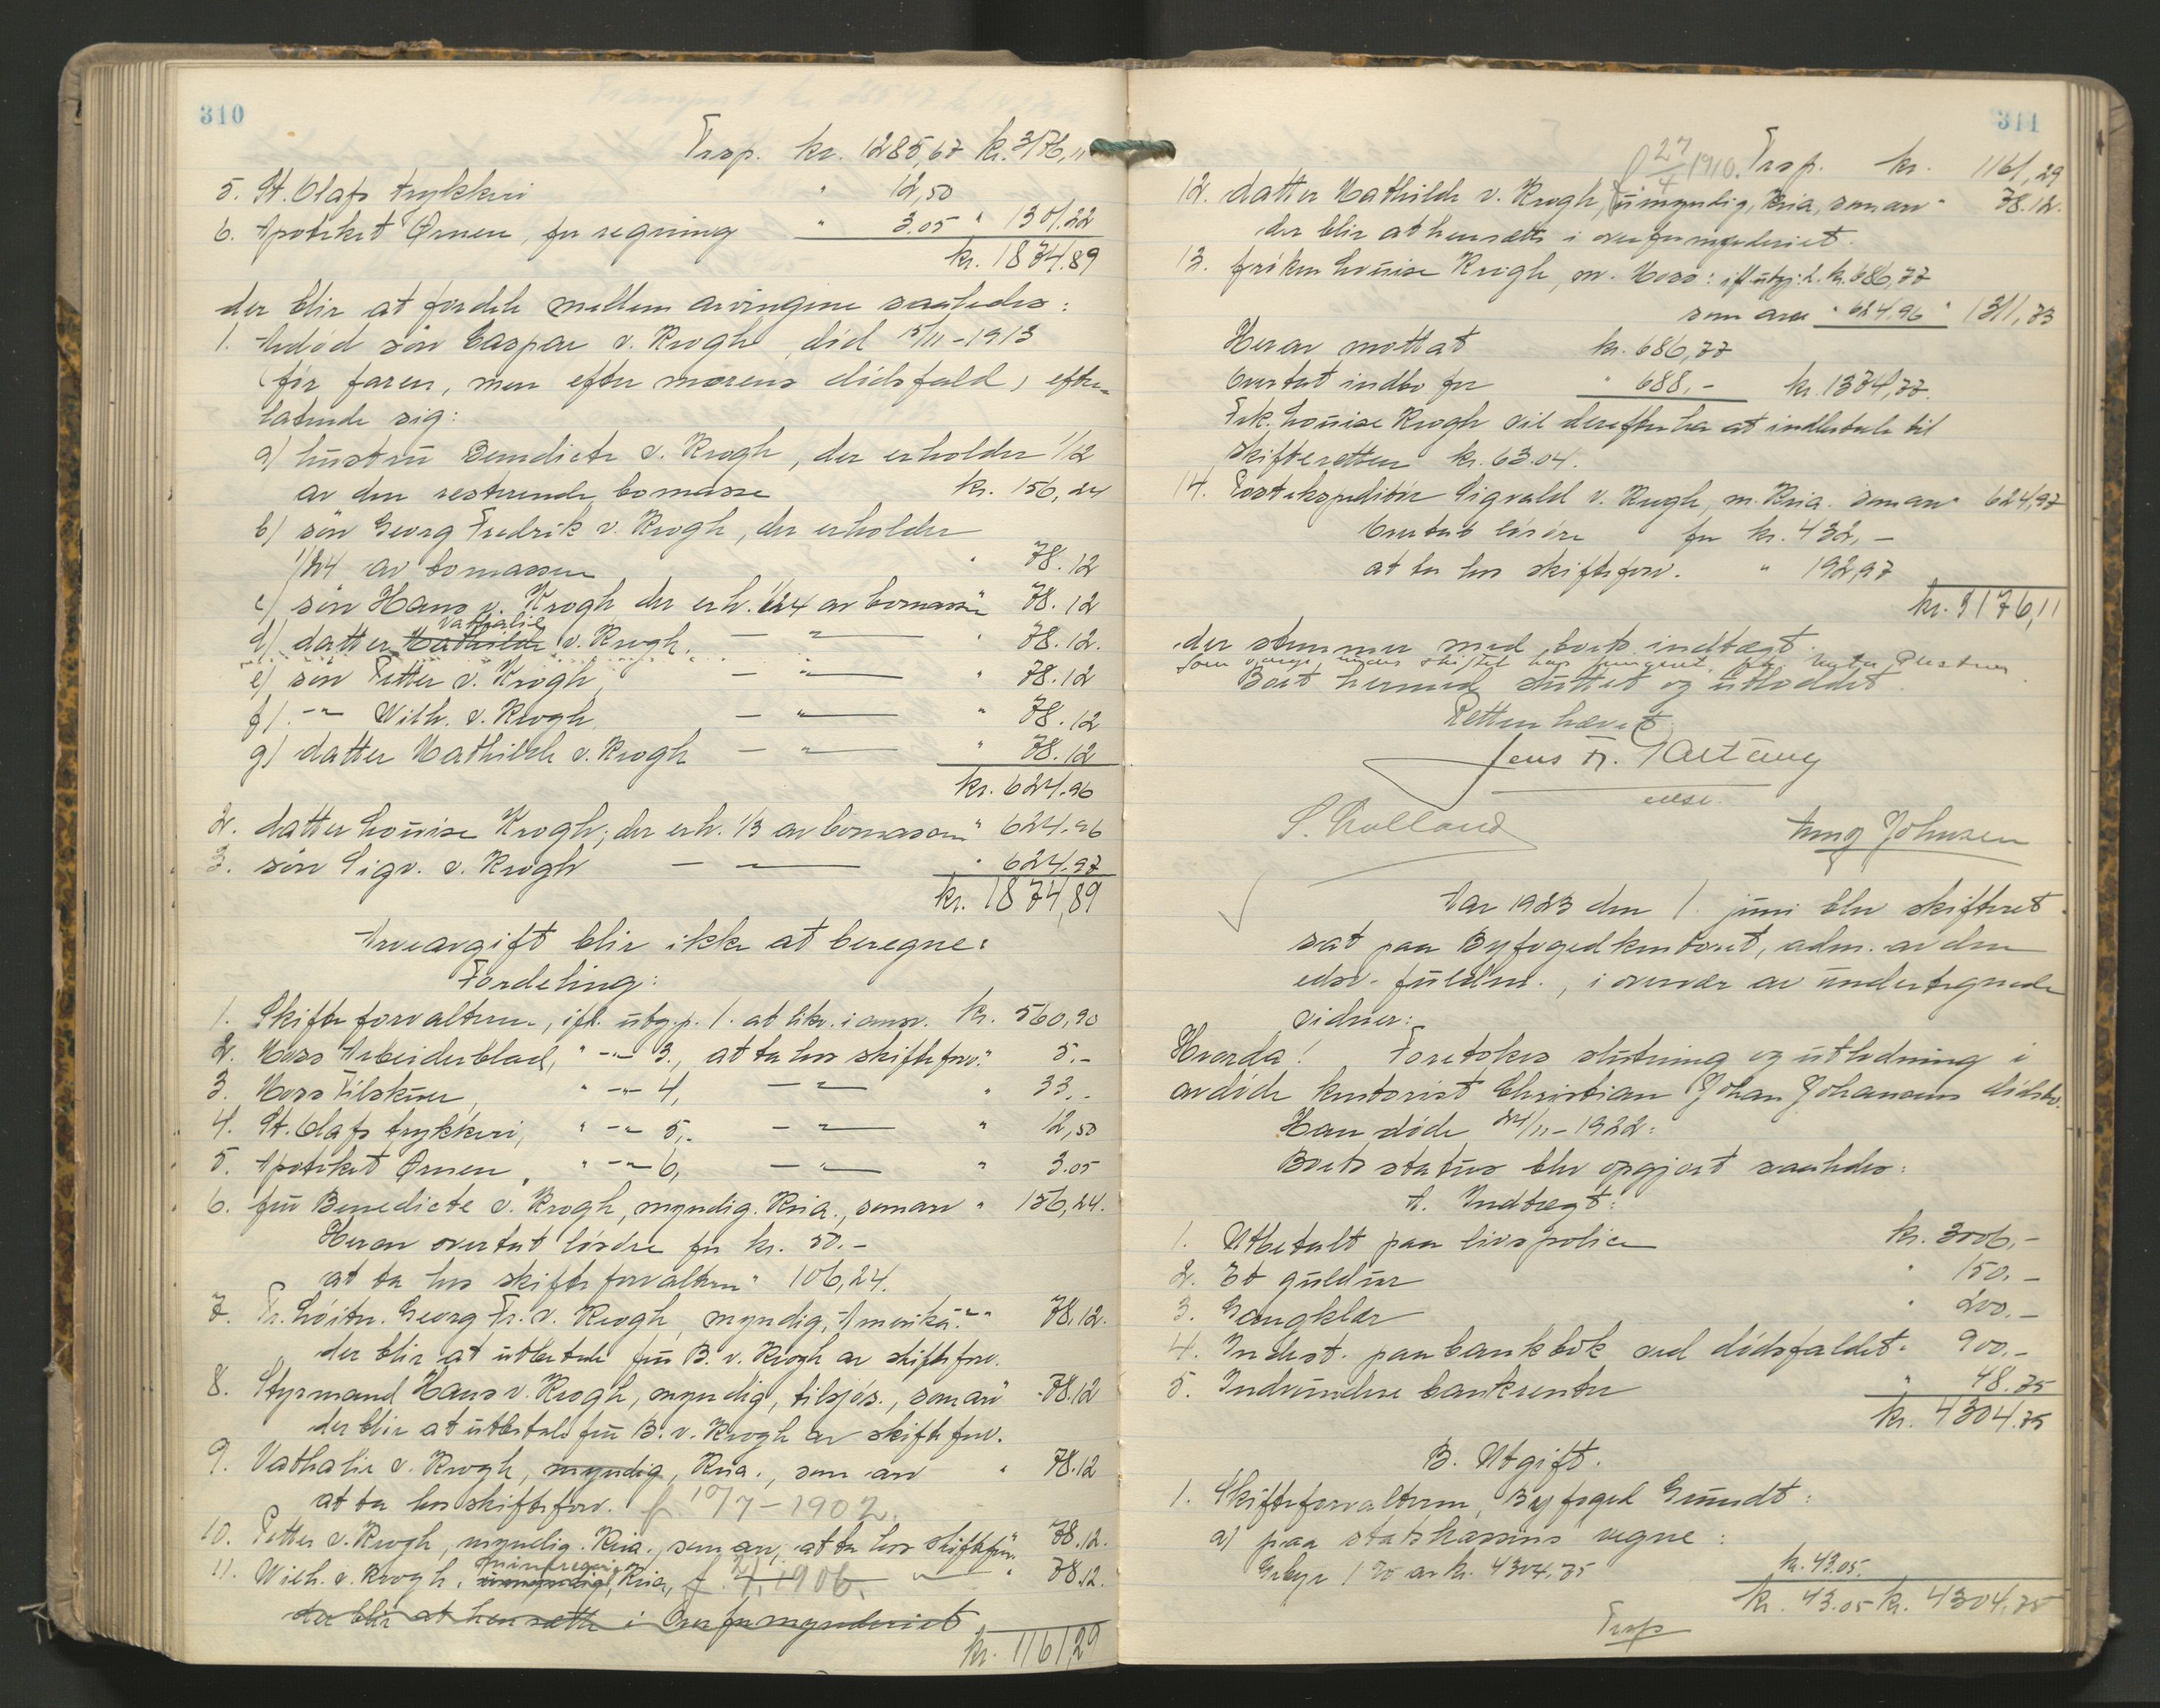 310
Trsp. kr. 1285,67 kr. 3176,11
5. St. Olafs trykkeri " 12,50
6. Apoteket Ørnen, for regning " 3.05 " 1301.22
kr. 1874.89
der blir at fordele mellem arvingene saaledes:
1. Avdød søn Caspar v. Krogh, død 15/11-1913
(før faren, men efter morens dødsfald) efter-
latende sig:
a) hustru Benedicte v. Krogh, der erholder 1/12
av den resterende bomasse kr. 156,24
b) søn Georg Fredrik v. Krogh, der erholder
1/24 av bomassen " 78.12
c) søn Hans v. Krogh der erh. 1/24 av bomassen " 78.12
Nathalie
d) datter Mathilde v. Krogh. — " — " 78.12.
e) søn Petter v. Krogh, — " — " 78.12
f) -"- Wilh. v. Krogh. — " — " 78.12
g) datter Mathilde v. Krogh — " — " 78.12
kr. 624.96
2. datter Louise Krogh, der erh. 1/3 av bomassen " 624.96
3. søn Sigv. v. Krogh — " — " 624.97
kr. 1874,89
Arveavgift blir ikke at beregne.
Fordeling:
1. Skifteforvalteren, ifl. utg.p. 1. at likv. i ansv. kr. 560,90
2. Moss Arbeiderblad, " -"- 3., at ta hos skifteforv. " 5.-
3. Moss Tilskuer, " -"- 4, — " — " 33.-
4. St. Olafs trykkeri, " -"- 5,. — " — " 12,50
5. Apoteket Ørnen, " -"- 6, — " — " 3.05
6. fru Benedicte v. Krogh, myndig. Kria., som arv " 156,24.
Herav overtat løsøre for kr. 50.-
at ta hos skifteforvalteren " 106,24.
7. Pr. løitn. Georg Fr. v. Krogh, myndig, Amerika. " " 78.12.
der blir at utbetale fru B. v. Krogh av skifteforv.
8. Styrmand Hans v. Krogh, myndig, tilsjøs., som arv " 78.12
der blir at utbetale fru B. v. Krogh av skifteforv.
9. Nathalie v. Krogh, myndig, Kria., som arv " 78.12
at ta hos skifteforv. f. 10/7-1902.
10. Petter v. Krogh, myndig. Kria., som arv, at ta hos skifteforv. " 78.12.
mindreaarig
11. Wilh. v. Krogh, umyndig, Kria, f. 1906. — " — " 78.12.
der blir at hensætte i Overformynderiet
kr. 1161,29
311
f 27/4 1910. Trsp. kr. 1161,29
12. datter Mathilde v. Krogh, umyndig, Kria, som arv " 78.12.
der blir at hensætte i overformynderiet.
13. frøken Louise Krogh, m. Moss: ifl. utg.p. 2. kr. 686,77
som arv " 624,96 " 1311,73
Herav mottat kr. 686,77
Overtat indbo for " 688,- kr. 1374,77.
Frk. Louise Krogh vil derefter ha at indbetale til
skifteretten kr. 63.04.
14. Postekspeditør Sigvald v. Krogh, m. Kria. som arv " 624,97
Overtat løsøre for kr. 432,-
at ta hos skifteforv. " 192,97
kr. 3176,11
der stemmer med boets indtægt.
Som verge under skiftet har fungeret
Boet hermed sluttet og utloddet.
Retten hævet
Jens
edsv.
Aug Johnsen
Aar 1923 den 1. juni blev skifteret
sat paa Byfogedkontoret, adm. av den
edsv. fuldm., i overvær av undertegnede
vidner:
Hvorda! Foretokes slutning og utlodning i
avdøde kontorist Christian Johan Johansens dødsbo.
Han døde 24/11-1922.
Boets status blev opgjort saaledes:
A. Indtægt:
1. Utbetalt paa livspolice kr. 3006,-
2. Et guldur " 150.-
3. Gangklær " 200.-
4. Indest. paa bankbok ved dødsfaldet " 900.-
5. Indvundne bankrenter " 48.75
kr. 4304.75
B. Utgift.
1. Skifteforvalteren, Byfoged Grundt:
a) paa statskassens vegne:
Gebyr 1 % av kr. 4304.75 kr. 43.05.
kr. 43.05 kr. 4304,75
Trsp